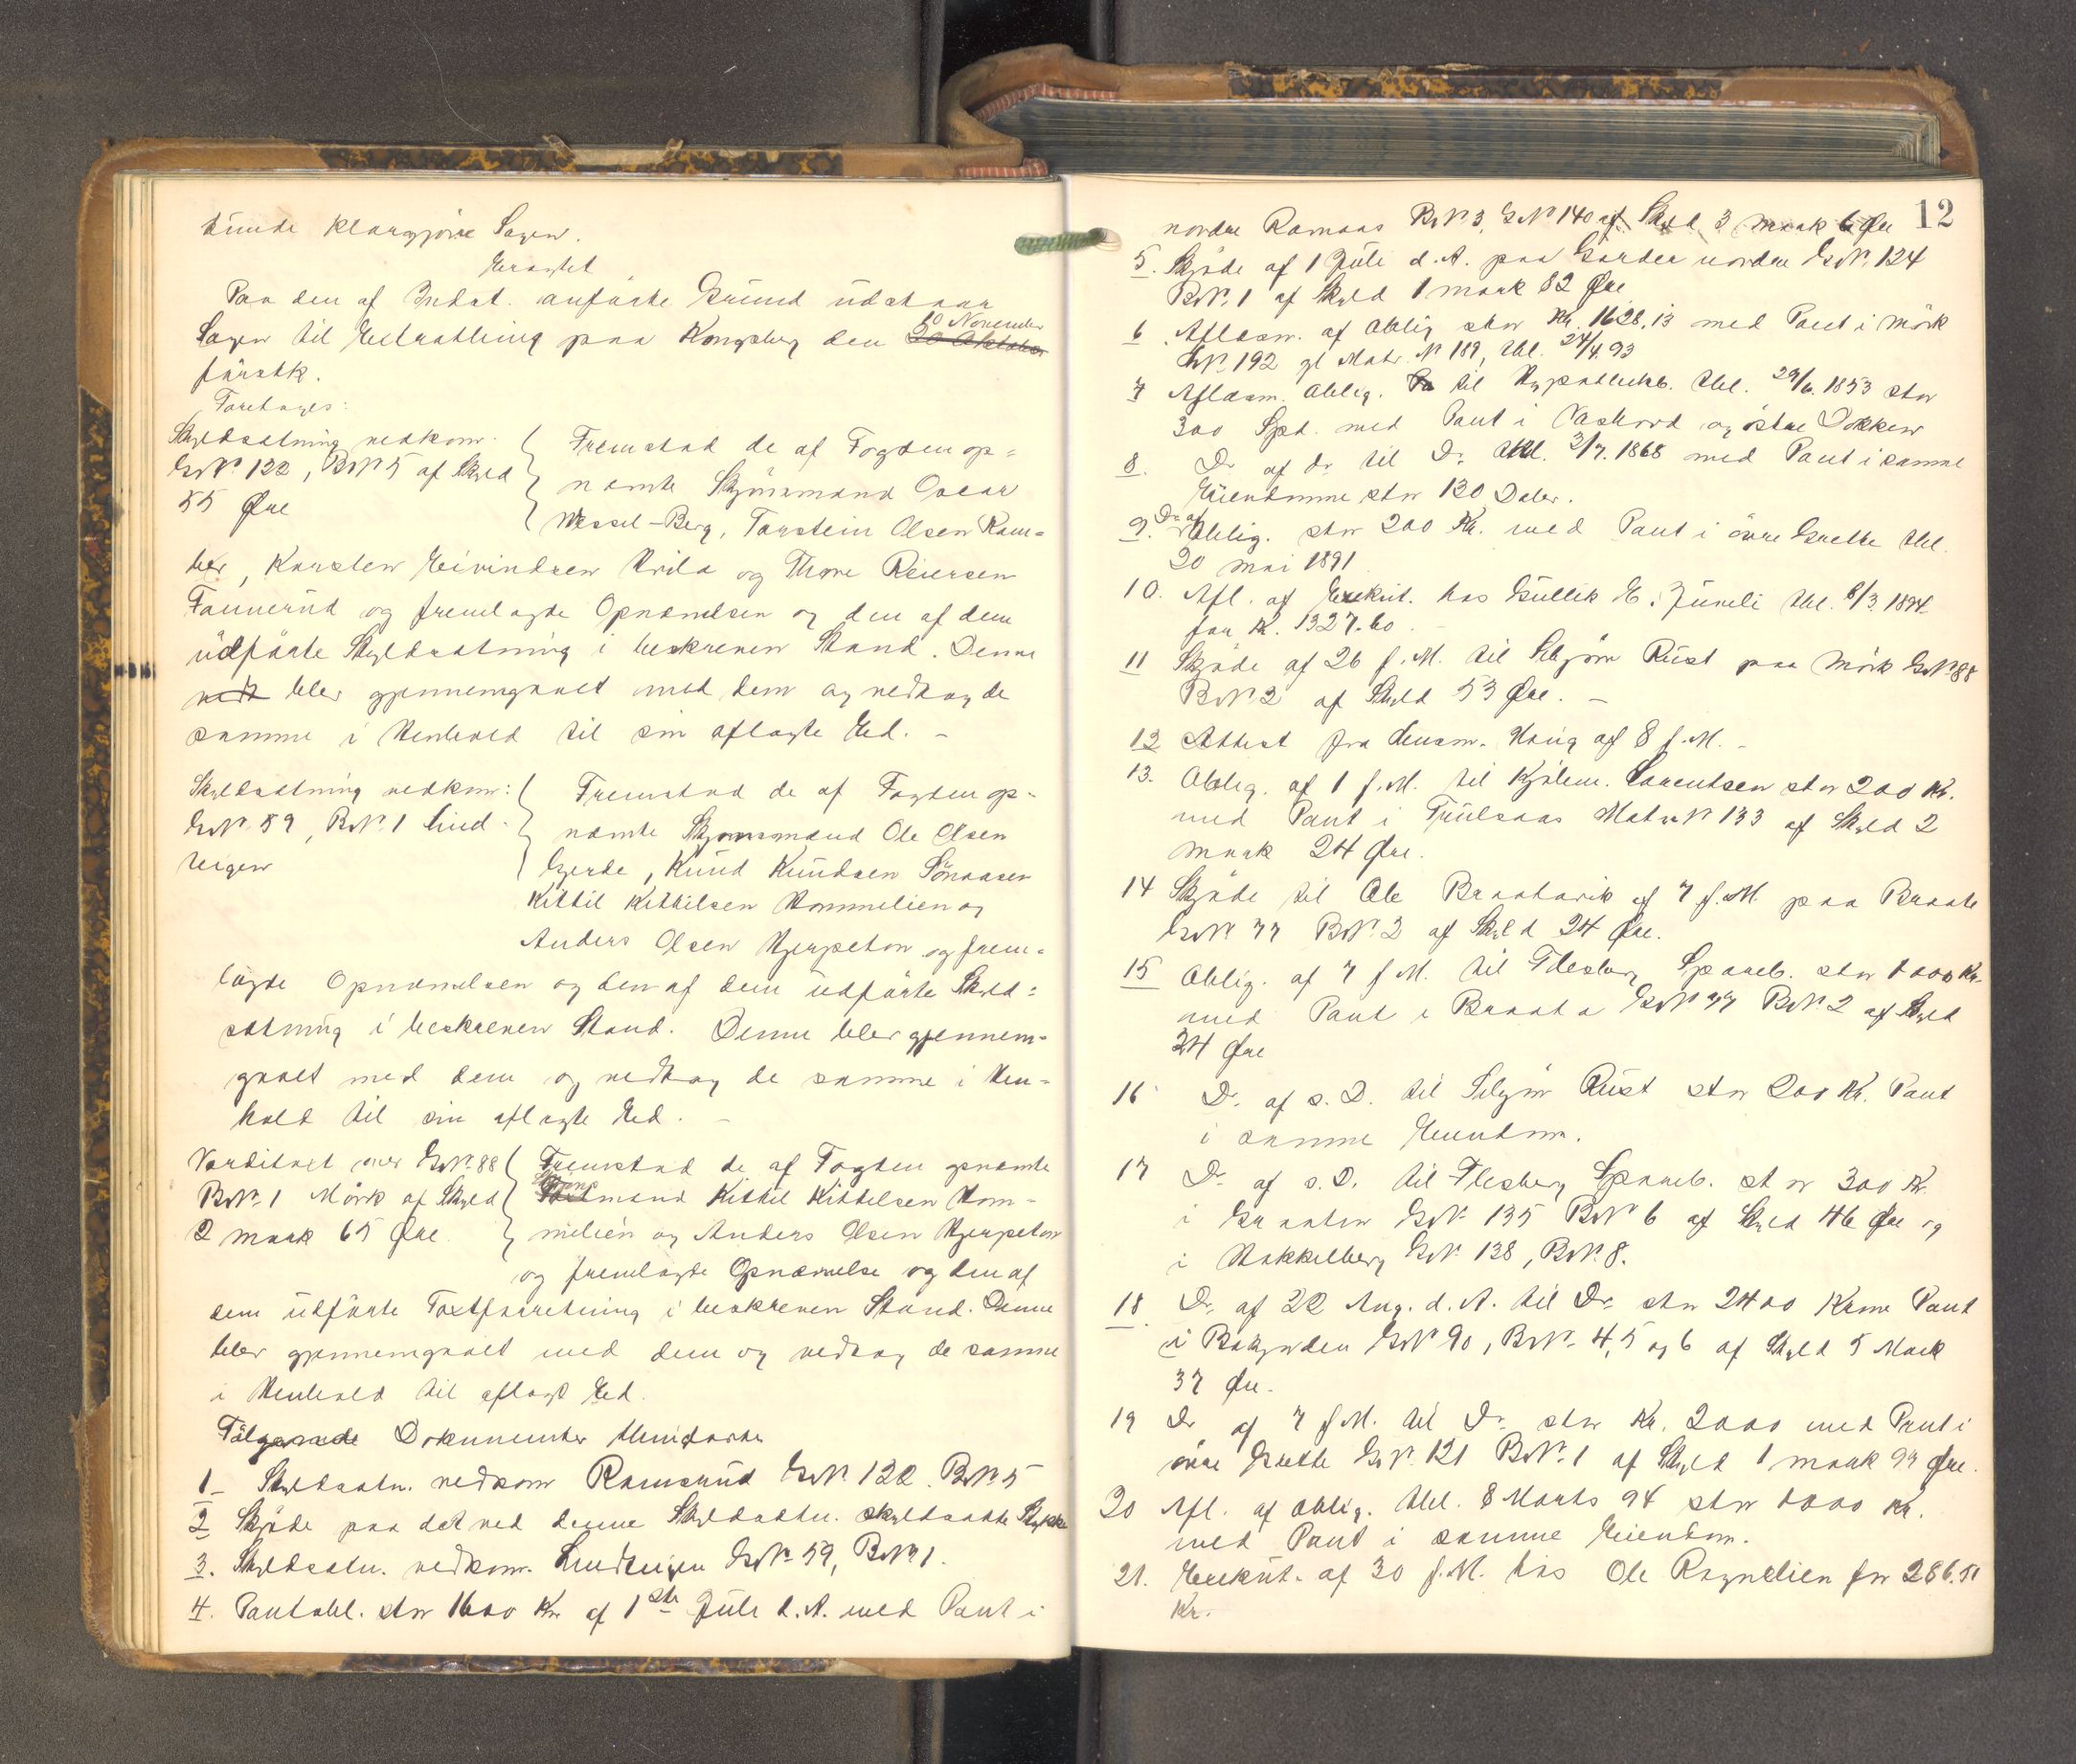 kunde klargjøre Sagen.
Eragtet
Paa den af Indst. anførte Grund udstaar
Sagen til Behandling paa Kongsberg den 30 Oktober 10 November
førstk.
Foretages:
Skyldsætning vedkom.
GNo. 122, BNo 5 af Skyld
55 Øre
Fremstod de af Fogden op=
nævnte Skjönsmænd Oscar
Wessel-Berg, Torstein Olsen Ram=
ber, Karsten Eivindsen Hvila og Thore Reiersen
Fannerud og fremlagde Opnævnelsen og den af dem
udførte Skyldsætning i beskreven Stand. Denne
blev gjennemgaaet med dem og vedtog de
samme i Henhold til sin aflagte Ed. -
Skyldsætning vedkom:
GNo. 59, BNo. 1 Lind-
teigen
Fremstod de af Fogden op-
nævnte Skjønsmænd Ole Olsen
Gjerde, Knud Knudsen Sönaasen
Kittil Kittilsen Hommelien og
Anders Olsen Hjerpeton og frem=
lagde Opnævnelsen og den af dem udførte Skyld=
sætning i beskreven Stand. Denne blev gjennem=
gaaet med dem og vedtog de samme i Hen=
hold til sin aflagte Ed. -
Værditaxt over GNo. 88
BNo. 1 Mörk af Skyld
2 mark 65 Øre
Fremstod de af Fogden opnævnte
Skjønsmænd Kittil Kittelsen Hom-
melien og Anders Olsen Hjerpeton
og fremlagde Opnævnelse og den af
dem udførte Taxtforretning i beskreven Stand. Denne
blev gjennemgaaet med dem og vedtog de samme
i Henhold til aflagt Ed.
Følgende Dokumenter
1 Skyldsætn. vedkom Ramsrud GNo. 122. BNo. 5
2 Skjøde paa det ved denne Skyldsætn. skyldsatte Stykke
3. Skyldsætn. vedkom. Lindteigen GNo. 59, BNo. 1.
4. Pantobl. stor 1600 Kr af 1ste Juli d. A. med Pant i
12
nordre Ramaas BNo 3, GNo 140 af Skyld 3 mark 6 Øre
5. Skjøde af 1 Juli d. A. paa Gørder nordre GNo. 124
BNo. 1 af Skyld 1 mark 82 Øre
6 Aflæsn. af Oblig stor Kr. 1628,13 med Pant i Mörk
LNo. 192 gl Matr. No 189, tbl. 24/4.93
7 Aflæsn. Oblig. til Hypothekb. tbl. 29/6. 1853 stor
300 Spd. med Pant i og østre Dokken
8. Do. af do. til Do. tbl. 3/7. 1868 med Pant i samme
Eiendomme stor 130 Daler.
9. Do af Oblig. stor 200 Kr. med Pant i øvre Grette tbl.
20 mai 1891
10. Afl. af Exekut. hos Gullik E. Juveli tbl. 8/3. 1894
for Kr. 1327.60.
11 Skjøde af 26 f. M. til Sebjörn Rust paa Mörk GNo. 88
BNo 2 af Skyld 53 Øre. -
12 Attest fra Lensm. Haug af 8 f. M. -
13. Oblig. af 1 f. M. til Kjøbm. Laurentsen stor 200 Kr.
med Pant i Truelsaas Matr No 133 af Skyld 2
mark 24 Øre.
14 Skjøde til Ole Braatavik af 7 f. M. paa Braate
GNo. 77 BNo. 2 af Skyld 24 Øre.
15 Oblig. af 7 f M. til Flesberg Spareb. stor 1000 Kr.
med Pant i Braata GNo 77 BNo. 2 af Skyld
24 Øre
16 Do. af s. D. til Sebjörn Rust stor 200 Kr. Pant
i samme Eiendom.
17 Do. af s. D. til Flesberg Spareb. stor 300 Kr.
i Graaten GNo. 135 BNo 6 af Skyld 46 Øre og
i Stokkelberg GNo. 138, BNo. 8.
18 Do. af 22 Aug. d. A. til Do. stor 2400 Krone Pant
i GNo 90, BNo. 4, 5 og 6 af Skyld 5 Mark
37 Øre.
19 Do af 7 f M. til Do stor Kr. 2000 med Pant i
øvre Grette GNo. 121 BNo. 1 af Skyld 1 mark 97 Øre.
20 Afl. af Oblig. tbl. 8 Marts 94 stor 1000 Kr.
med Pant i samme Eiendom.
21. Exekut. af 30 f. M. hos Ole Rognelien for 286.51
Kr.